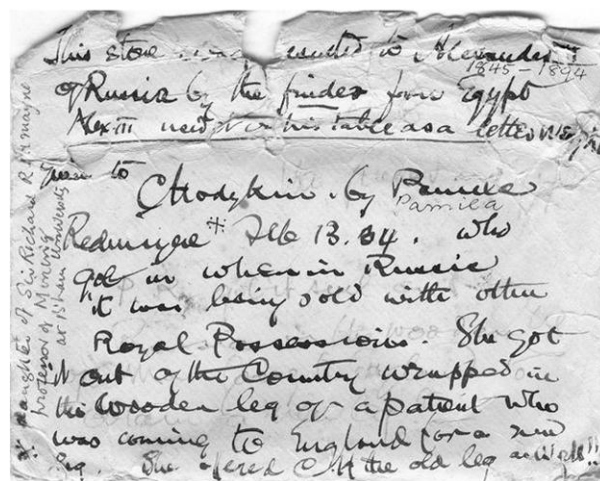 This stone was presented to Alexander III
1845-1894
of Russia by the finder from Egypt
Alex III used it on his table as a letter weight
given to
C Hodgkin. by Pamela
Pamila
Redmayne * Feb 13. 34. who
got it when in Russia
it was being sold with other
Royal Possessions. She got
it out of the Country wrapped in
the wooden leg of a patient who
was coming to England for a new
leg. She offered C H the old leg as well!!
* daughter of Sir Richard R Redmayne
professor of Mining
at B'ham University